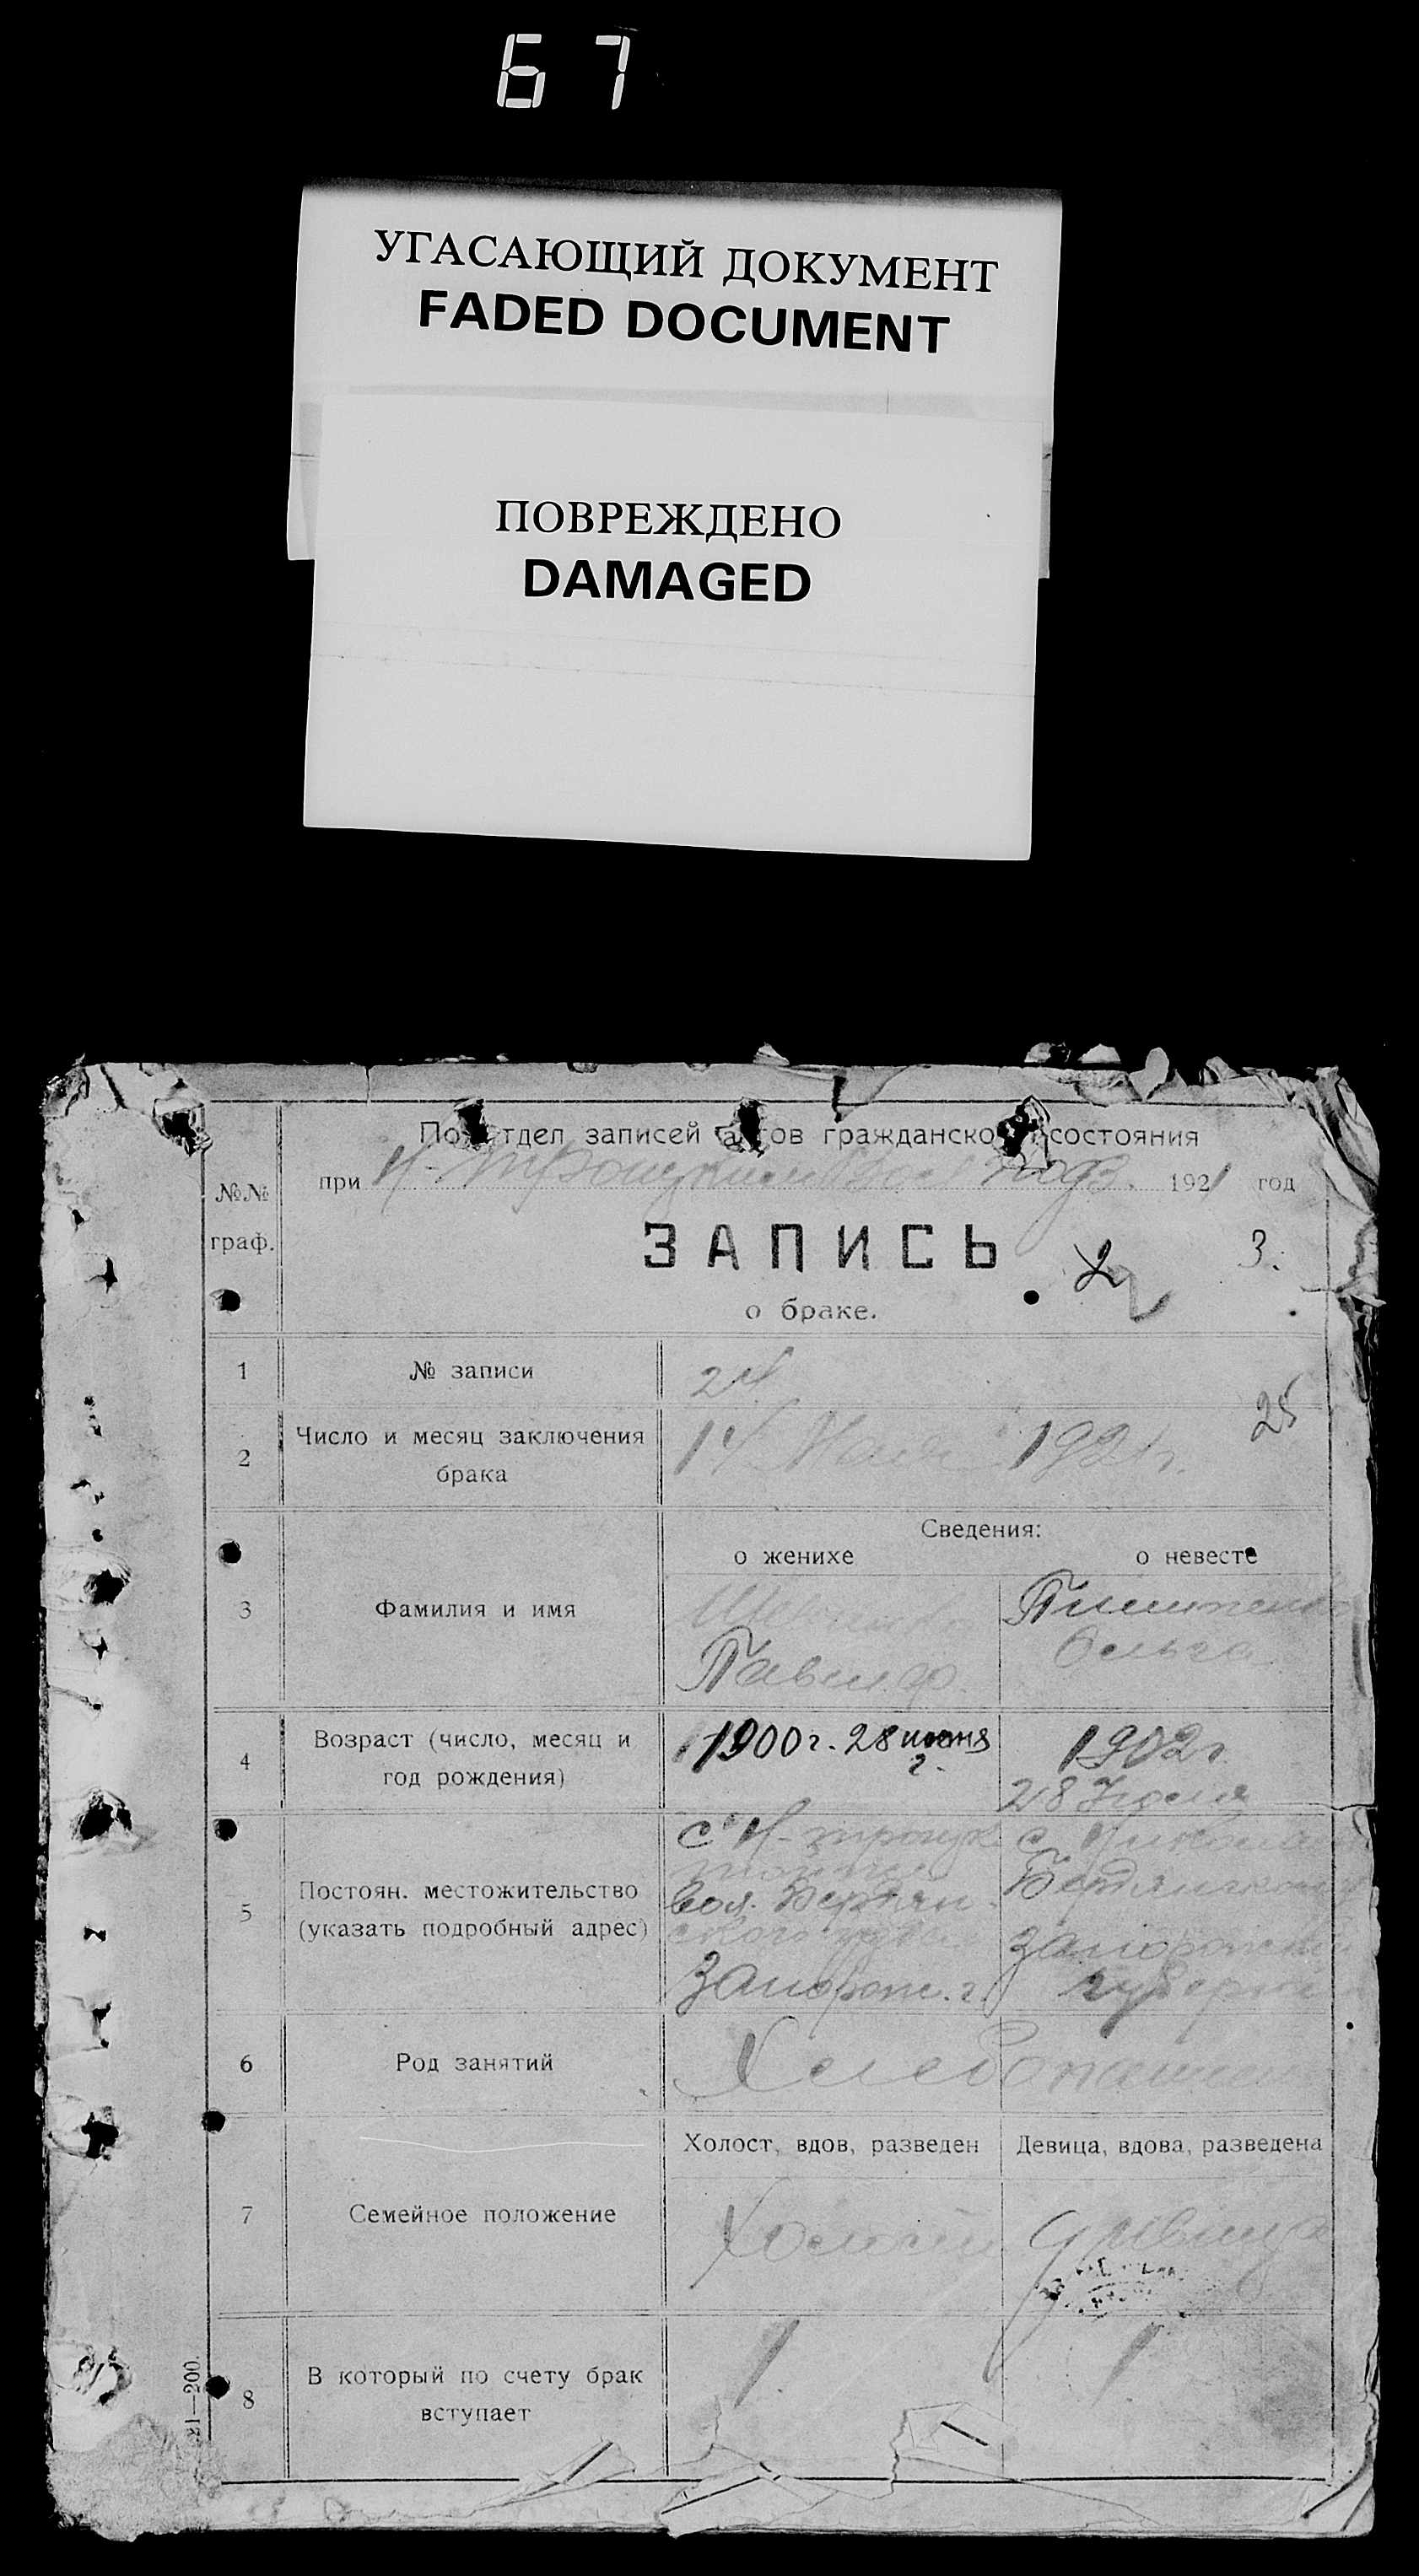 67
УГАСАЮЩИЙ ДОКУМЕНТ
FADED DOCUMENT
ПОВРЕЖДЕНО
DAMAGED
По тдел записей а ов гражданско состояния
при Н-Троицком Вол 1921 год
№№
граф.
ЗАПИСЬ
2
3.
о браке.
1 № записи 24
25
2 Число и месяц заключения
брака
14 Мая 1921 г.
Сведения:
о женихе о невесте
3 Фамилия и имя
Павел Ф.
Ольга
4 Возраст (число, месяц и
год рождения)
1900 г. 28 июня
г.
1902 г.
28 Июля
5 Постоян. местожительство
(указать подробный адрес)
с Н-троицк
вол. Бердян
ского
Запорож. г.
с.
Бердянского
Запорожской
губернии
6 Род занятий Хлебопашец
Холост, вдов, разведен Девица, вдова, разведена
7 Семейное положение Холост девица
8 В который по счету брак
вступает
1. 1.
21—200.